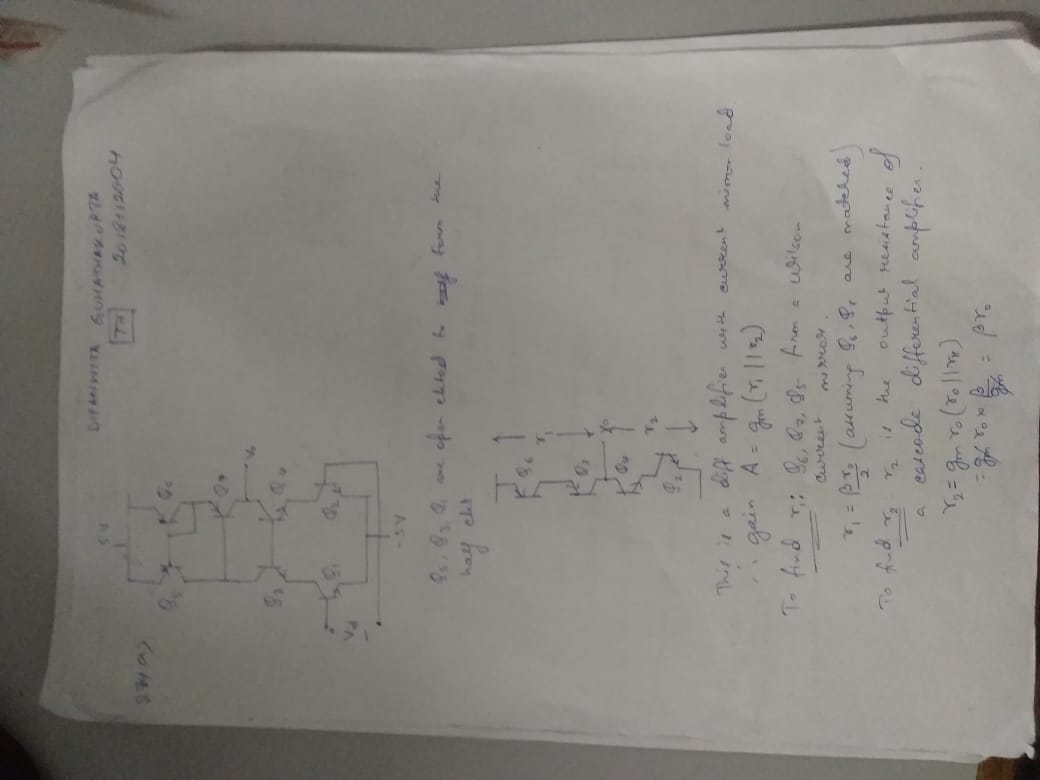 DIPANWITA GUHATHAKURTA
TA 2018112004
5V
Q5 Q6
Q7
V0
Q3 Q4
Q1 Q2
Vd
-
-5V
Q5, Q3, Q1 are open ckted to form the
half ckt
Q6
r1
Q7
V0
Q4
r2
Q2
This is a diff amplifier with current mirror load
∴ gain A = gm (r1 || r2)
To find r1: Q6, Q7, Q5 form a Wilson
current mirror.
r1 = βr0/2 (assuming Q6, Q5 are matched)
To find r2 r2 is the output resistance of
a cascode differential amplifier.
r2 = gm r0 (r0 || rπ)
= gm r0 × β/gm = βr0